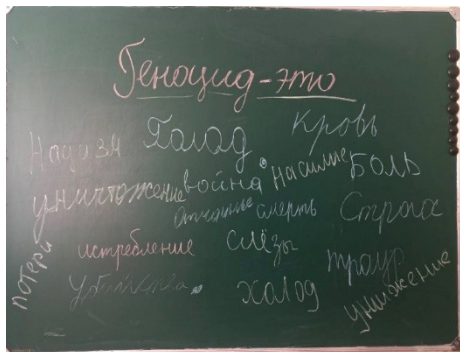 Геноцид - это
Нацизм Голод Кровь
уничтожение война насилие Боль
смерть Страх
истребление слёзы траур
потери Убийства холод унижение